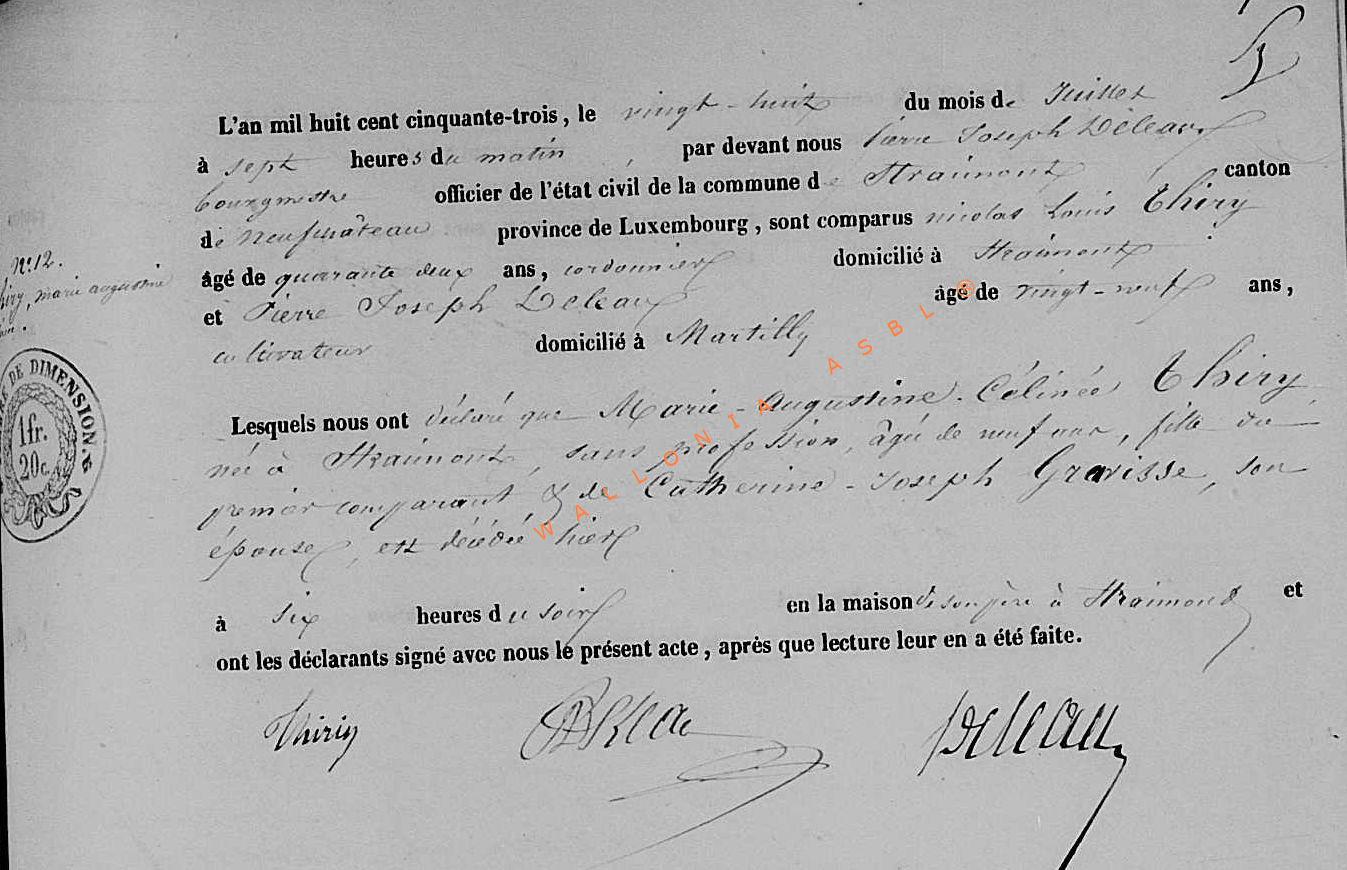 L'an mil huit cent cinquante-trois, le vingt-huit du mois de Juillet
à sept heures du matin, par devant nous Pierre Joseph Déleaux
bourgmestre officier de l'état civil de la commune de Straimont, canton
de neufchâteau province de Luxembourg, sont comparus nicolas Louis Thiry
âgé de quarante deux ans, cordonnier domicilié à Straimont
et Pierre Joseph Déleaux âgé de vingt-neuf ans,
cultivateur domicilié à Martilly
Lesquels nous ont déclaré que Marie-Augustine-Célinée Thiry
née à Straimont, sans profession, âgée de neuf ans, fille du
premier comparant & de Catherine-Joseph Gravisse, son
épouse, est décédée hier
à six heures du soir en la maison de son père à Straimont et
ont les déclarants signé avec nous le présent acte, après que lecture leur en a été faite.
Thiriy
Delleau
N° 12.
marie augustine
DE DIMENSION
1 fr.
20 c.
WALLONIA ASBL ©